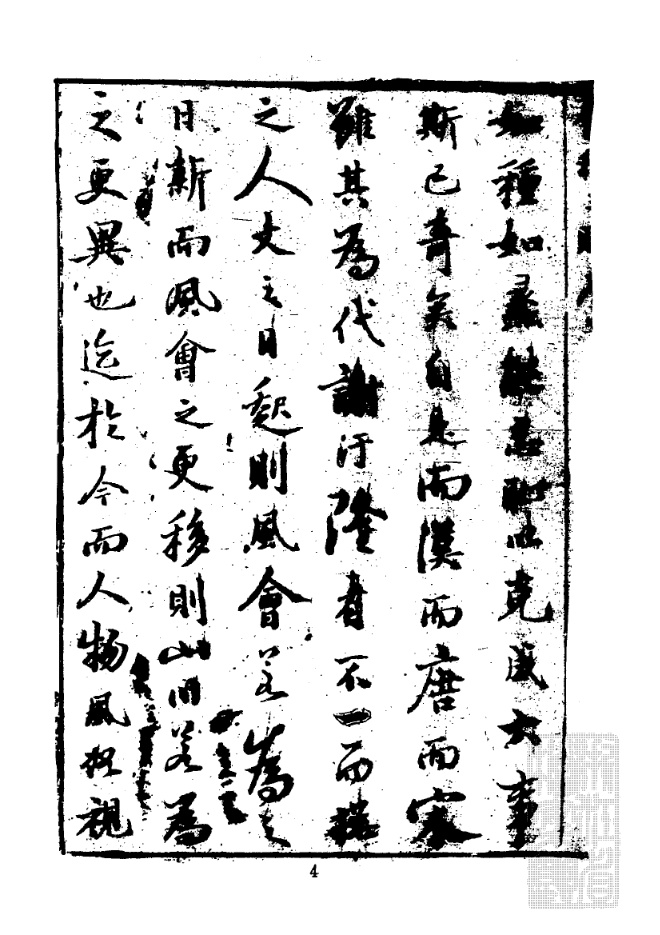 如種如蠡 以克成大事
斯已奇矣自是而漢而唐而宋
雖其為代謝汙隆者不一而
之人文之日起則風會若為之
日新而風會之更移則山川若為
之更異也迄於今而人物風俗視
4